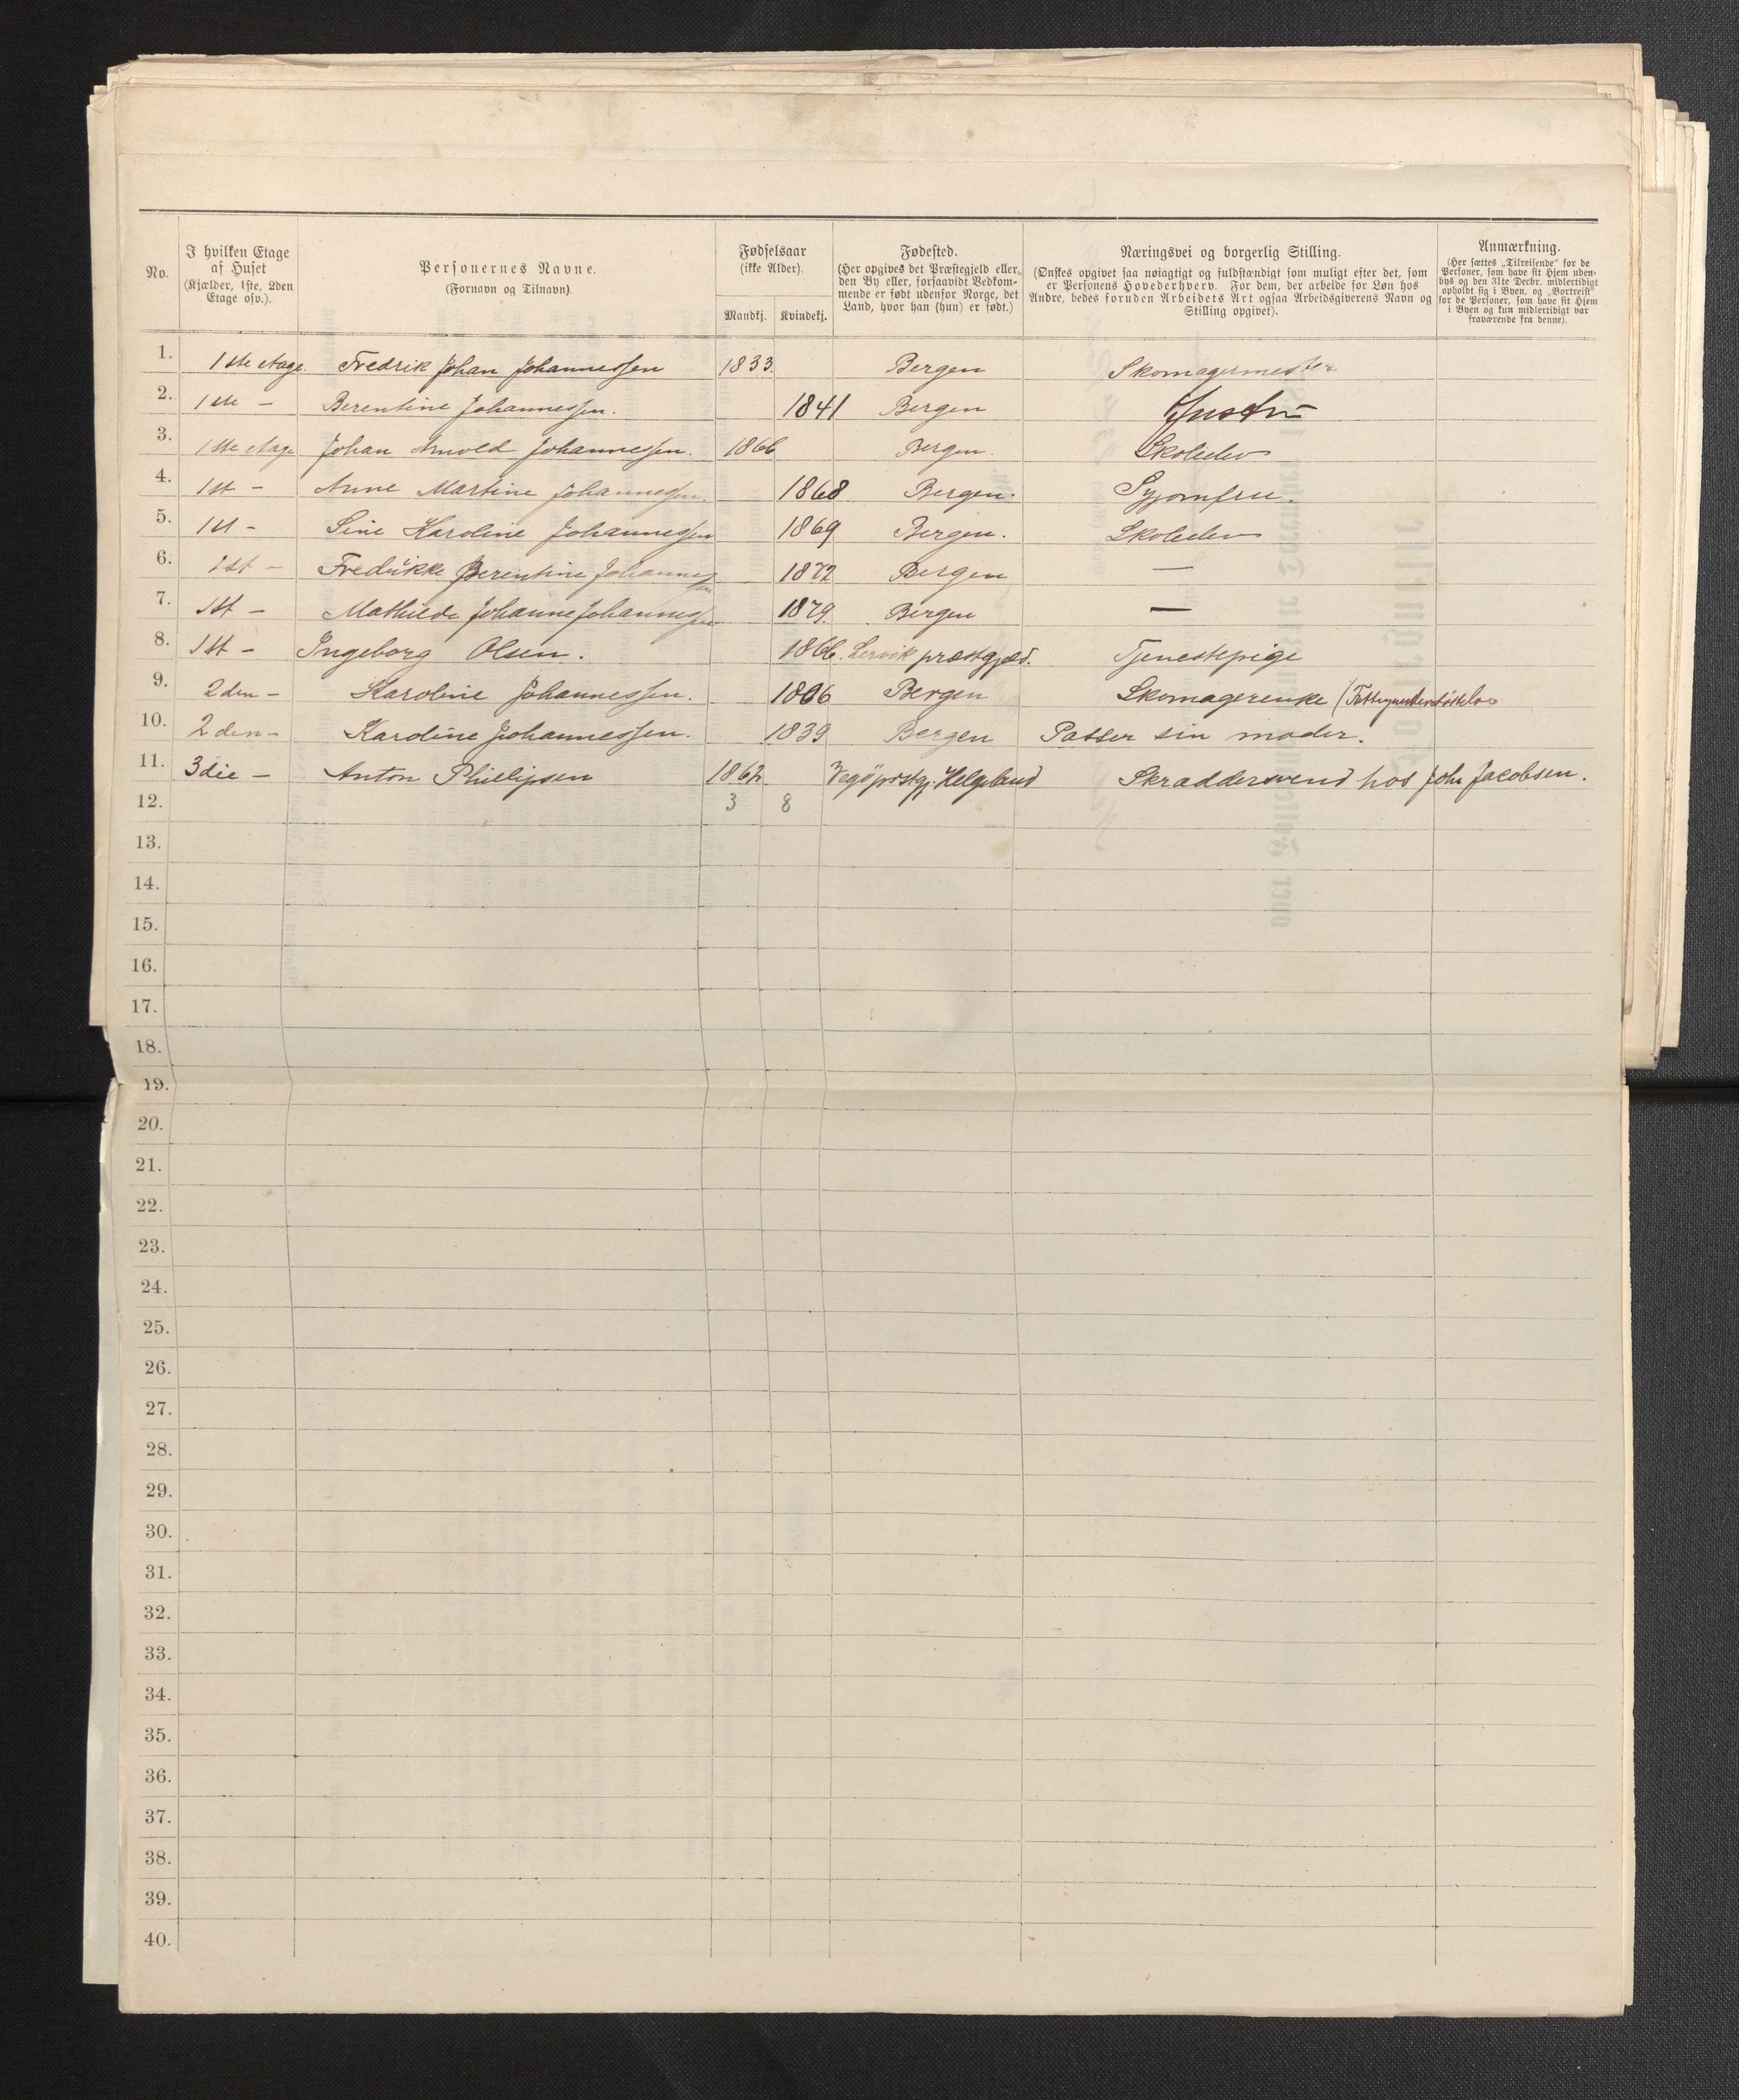 No.
I hvilken Etage
af Huset
(Kjælder, 1ste, 2den
Etage osv.).
Personernes Navne.
(Fornavn og Tilnavn).
Fødselsaar
(ikke Alder).
Mandkj. Kvindekj.
Fødested.
(Her opgives det Præstegjeld eller
den By eller, forsaavidt Vedkom-
mende er født udenfor Norge, det
Land, hvor han (hun) er født.)
Næringsvei og borgerlig Stilling.
(Ønskes opgivet saa nøiagtigt og fuldstændigt som muligt efter det, som
er Personens Hovederhverv. For dem, der arbeide for Løn hos
Andre, bedes foruden Arbeidets Art ogsaa Arbeidsgiverens Navn og
Stilling opgivet).
Anmærkning.
(Her sættes „Tilreisende“ for de
Personer, som have sit Hjem uden-
bys og den 31te Decbr. midlertidigt
opholdt sig i Byen, og „Bortreist“
for de Personer, som have sit Hjem
i Byen og kun midlertidigt var
fraværende fra denne).
1. 1ste etage Fredrik Johan Johannessen 1833. Bergen Skomagermester
2. 1ste – Berentine Johannessen. 1841 Bergen Hustru
3. 1ste etage Johan Arnold Johannessen. 1866 Bergen. Skoleelev
4. 1st – Anne Martine Johannessen. 1868 Bergen. Syjomfru.
5. 1st – Sine Karoline Johannessen 1869 Bergen. Skoleelev
6. 1st – Fredrikke Berentine Johannessen 1872 Bergen —
7. 1st – Mathilde Johanne Johannessen 1879. Bergen —
8. 1st – Ingeborg Olsen. 1866. Lervik præstgjæld. Tjenestepige
9. 2den – Karoline Johannessen. 1806 Bergen Skomagerenke
10. 2den – Karoline Johannessen. 1839 Bergen Passer sin moder.
11. 3die – Anton Phillipsen 1862 Vegö prstgj. Helgeland Skraddersvend hos Johs Jacobsen.
12. 3 8
13.
14.
15.
16.
17.
18.
19.
20.
21.
22.
23.
24.
25.
26.
27.
28.
29.
30.
31.
32.
33.
34.
35.
36.
37.
38.
39.
40.